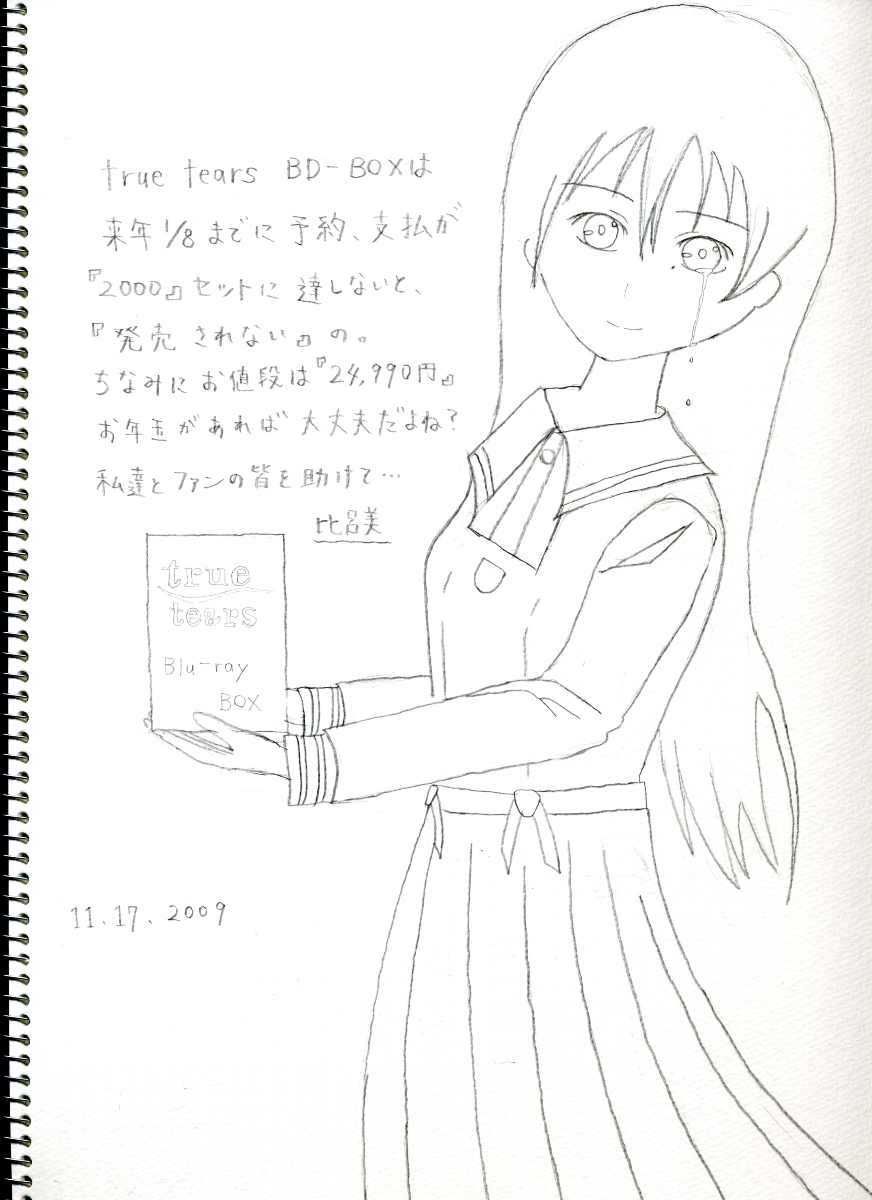 true tears BD-BOXは
来年1/8までに予約、支払が
『2000』セットに達しないと、
『発売されない』の。
ちなみにお値段は『24,990円』
お年玉があれば大丈夫だよね?
私達とファンの皆を助けて…
比呂美
true
tears
Blu-ray
BOX
11.17.2009